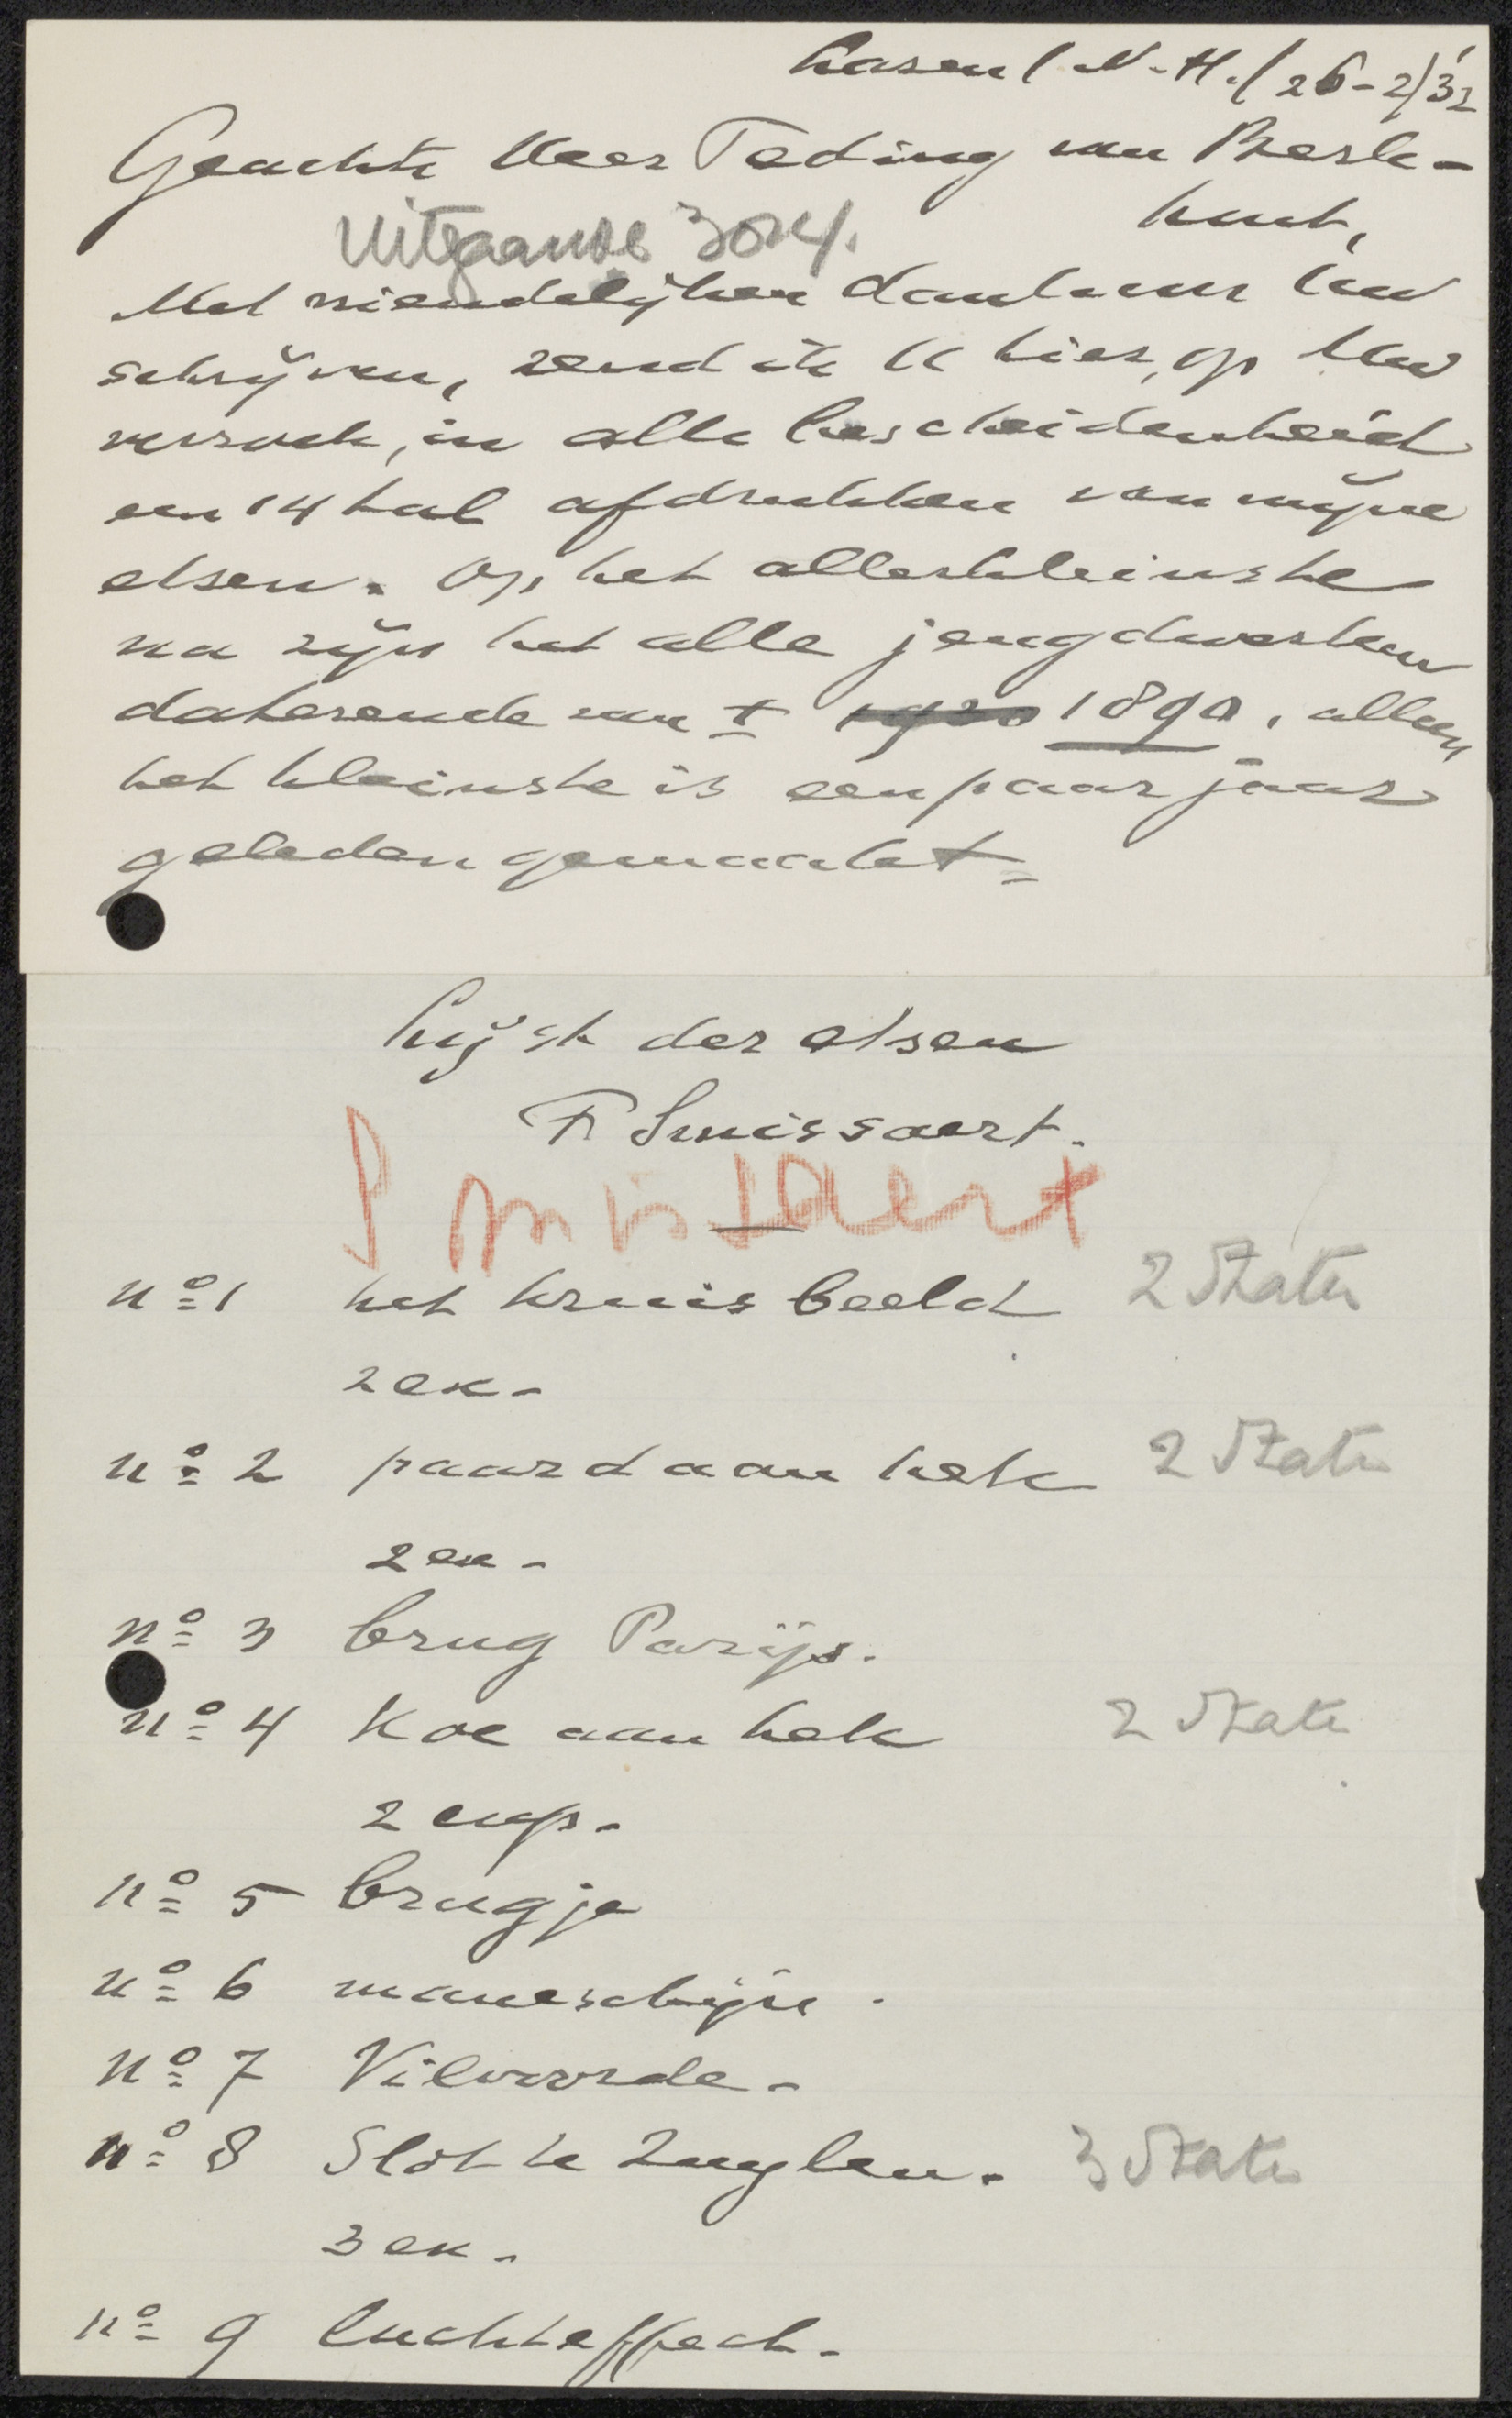 Laren (N-H.) 26-2/'32
Geachte Heer Teding van Berk-
hout,
Uitgaande 30x4.
Met vriendelijken dank voor Uw
schrijven, zend ik U hier, op Uw
verzoek, in alle bescheidenheid
een 14 tal afdrukken van mijne
etsen. Op het allerkleinste
na zijn het alle jeugdwerken
daterende van ± 1920 1890, alleen
het kleinste is een paar jaar
geleden gemaakt.
Lijst der etsen
F. Smissaert.
Smissaert
no 1 het kruisbeeld 2 Staten
2 ex.
no 2 paard aan hek 2 Staten
2 ex.
no 3 brug Parijs.
no 4 Koe aan hek 2 Staten
2 exp.
no 5 brugje
no 6 maneschijn.
no 7 Vilvoorde.
no 8 Slot te Zuylen. 3 Staten
3 ex.
no 9 luchteffect.